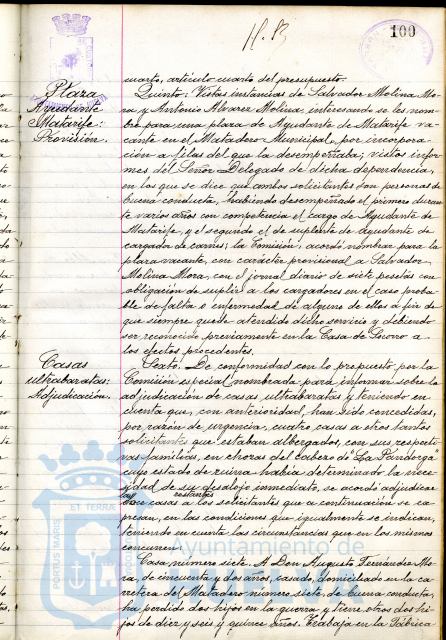 100
cuarto, artículo cuarto del presupuesto.
Plaza
Ayudante
Matarife:
Provisión.
Quinto: Vistas instancias de Salvador Molina Mo-
ra y Antonio Alvarez Molina, interesando se les nom-
bre para una plaza de Ayudante de Matarife va-
cante en el Matadero Municipal, por incorpora-
ción a filas del que la desempeñaba; vistos infor-
mes del Señor Delegado de dicha dependencia,
en los que se dice que ambos solicitantes son personas de
buena conducta, habiendo desempeñado el primero duran-
te varios años con competencia el cargo de Ayudante de
Matarife, y el segundo el de suplente de ayudante de
cargador de carnes; la Comisión, acordó nombrar para la
plaza vacante, con carácter provisional a Salvador
Molina Mora, con el jornal diario de siete pesetas con
obligación de suplir a los cargadores en el caso proba-
ble de falta o enfermedad de alguno de ellos a fin de
que siempre quede atendido dicho servicio y debiendo
ser reconocido previamente en la Casa de Socorro a
los efectos procedentes.
Casas
ultrabaratas:
Adjudicación.
Sexto. De conformidad con lo propuesto por la
Comisión especial nombrada para informar sobre la
adjudicación de casas ultrabaratas y teniendo en
cuenta que, con anterioridad, han sido concedidas,
por razón de urgencia, cuatro casas a otros tantos
solicitantes que estaban albergados, con sus respecti-
vas familias, en chozas del Cabezo de "La Pandorga"
cuyo estado de ruina había determinado la nece-
sidad de su desalojo inmediato, se acordó adjudicar
las restantes
doce casas a los solicitantes que a continuación se ex-
presan, en las condiciones que igualmente se indican,
teniendo en cuenta las circunstancias que en los mismos
concurren:
Casa número siete. A Don Augusto Fernández Mo-
ra, de cincuenta y dos años, casado, domiciliado en la ca-
rretera del Matadero número siete, de buena conducta,
ha perdido dos hijos en la guerra y tiene otros dos hi-
jos de diez y seis y quince años. Trabaja en la Fábrica
Ayuntamiento de
PORTUS MARIS
ET TERRAE